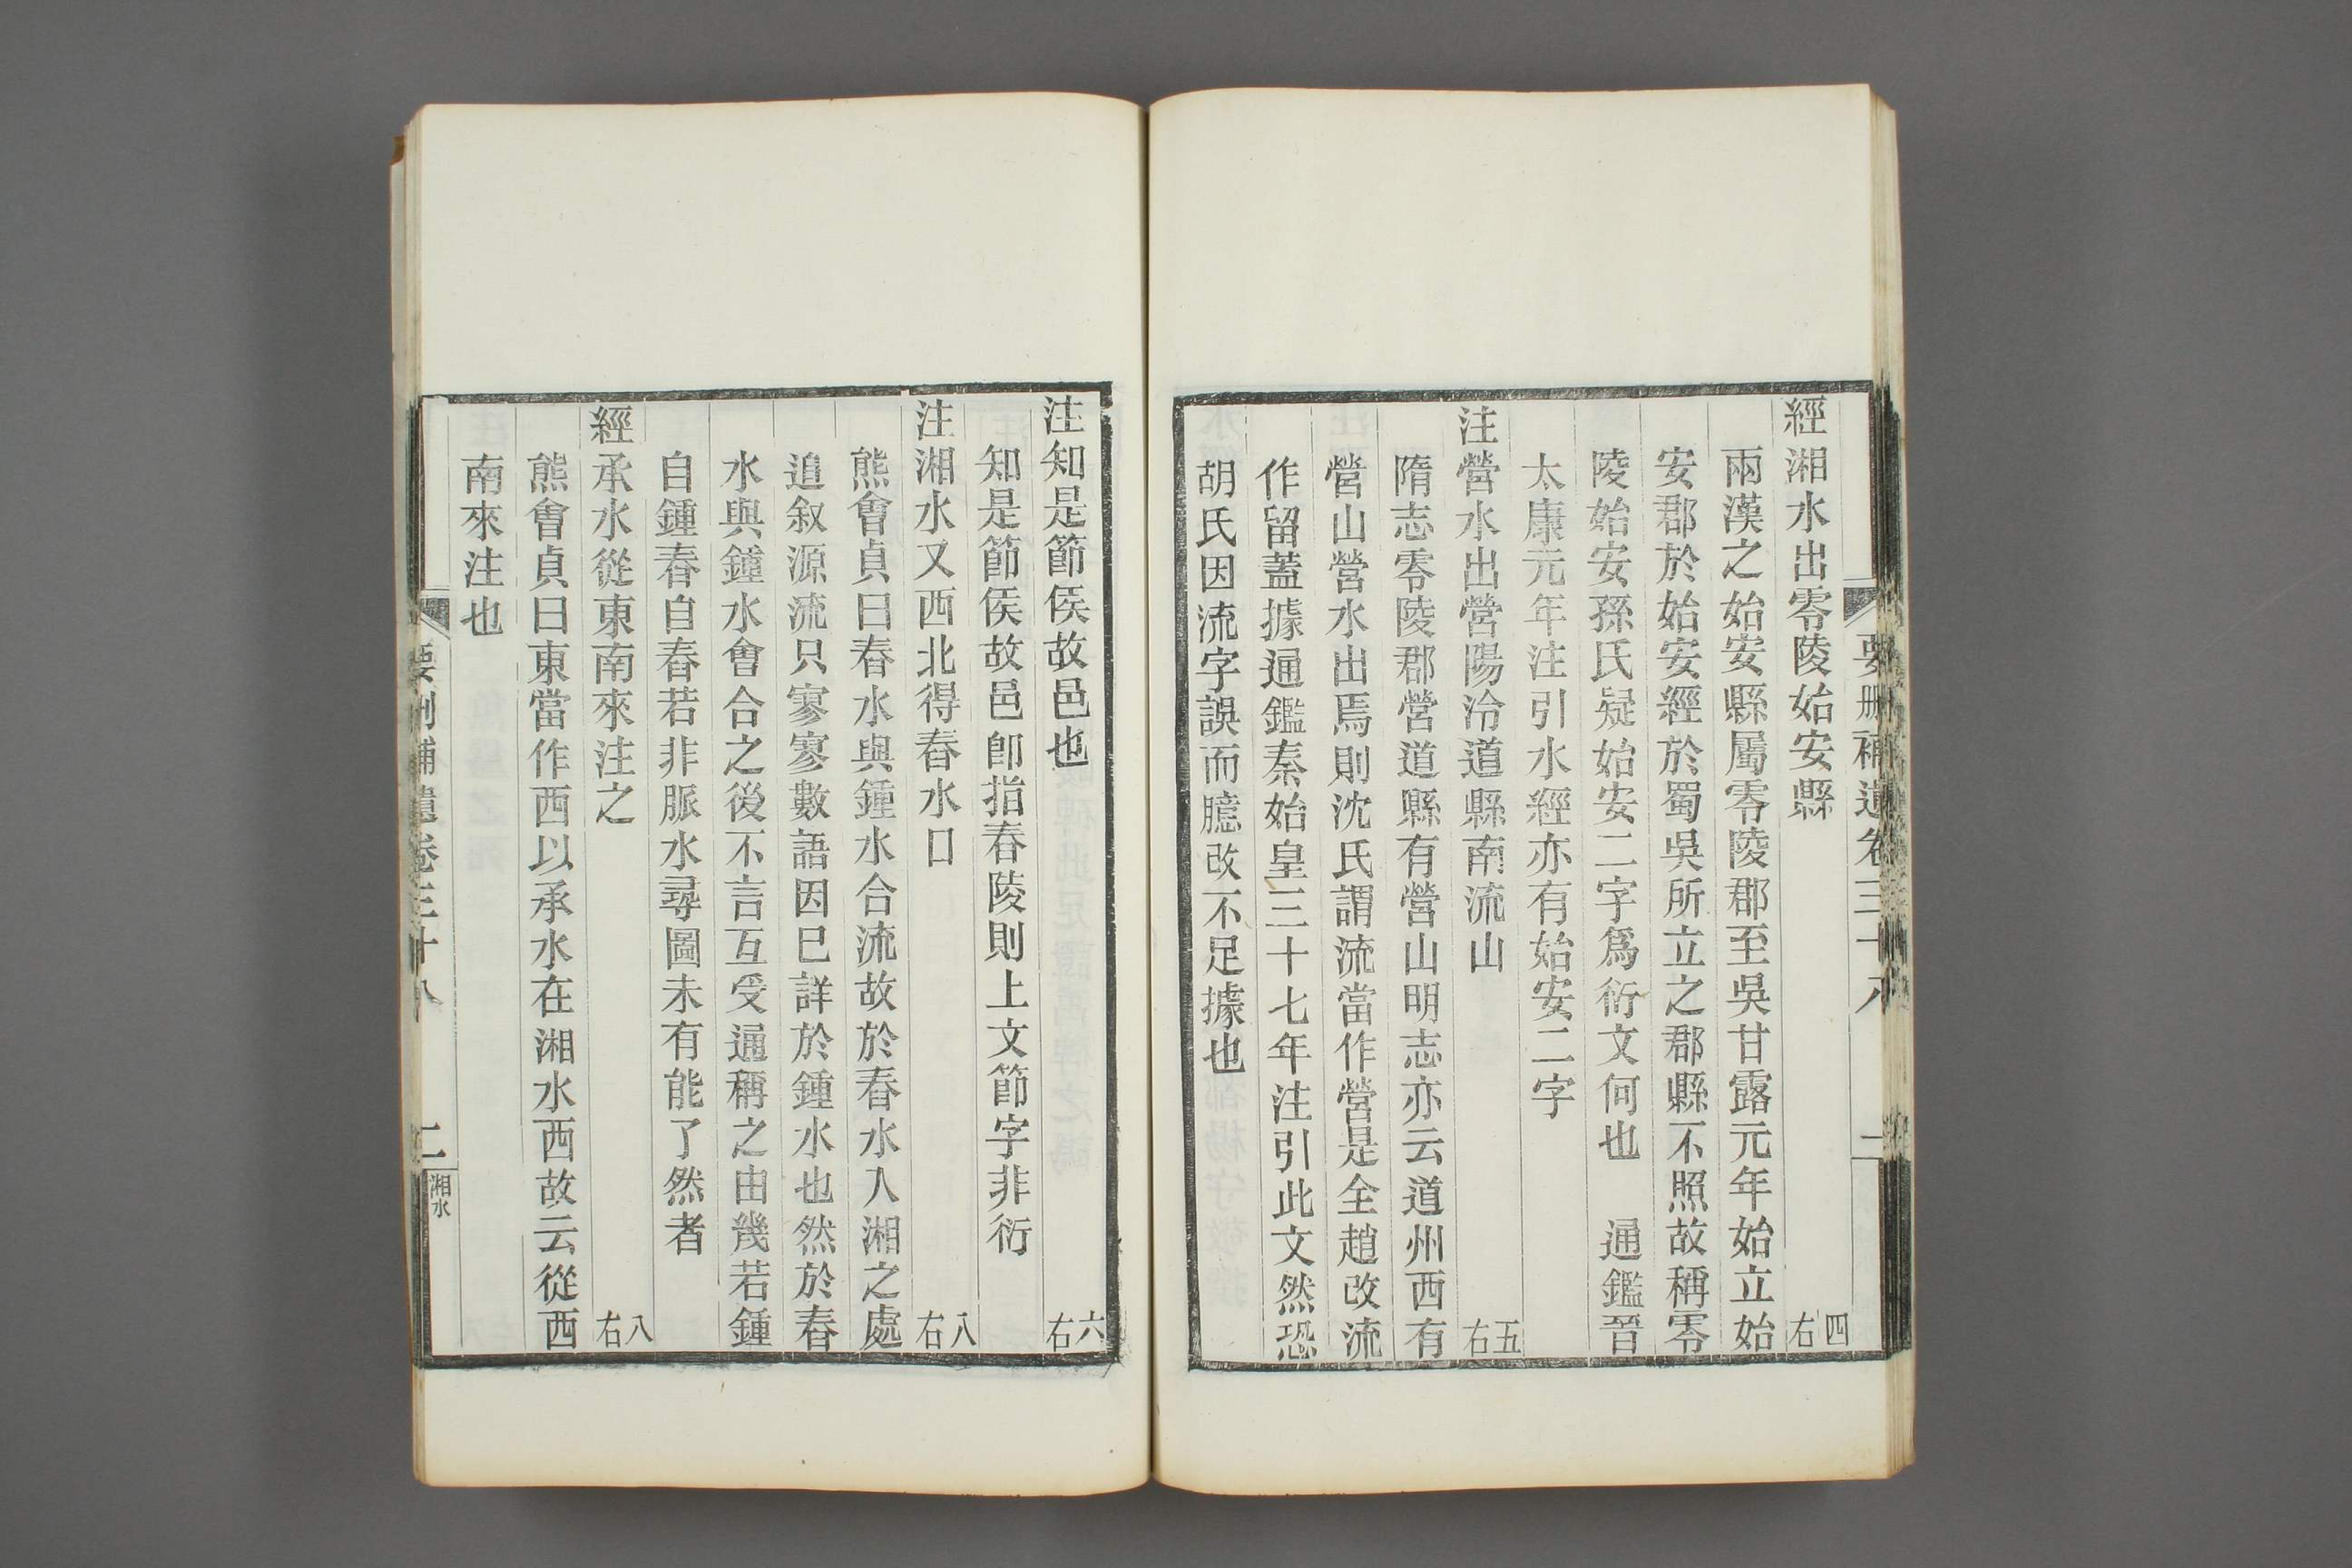 要刪補遺卷三十八
經湘水出零陵始安縣 四右
兩漢之始安縣屬零陵郡至吳甘露元年始立始
安郡於始安經於蜀吳所立之郡縣不照故稱零
陵始安孫氏疑始安二字爲衍文何也 通鑑晉
太康元年注引水經亦有始安二字
注營水出營陽泠道縣南流山 五右
隋志零陵郡營道縣有營山明志亦云道州西有
營山營水出焉則沈氏謂流當作營是全趙改流
作留蓋據通鑑秦始皇三十七年注引此文然恐
胡氏因流字誤而臆改不足據也
注知是節侯故邑也 六右
知是節侯故邑卽指舂陵則上文節字非衍
注湘水又西北得舂水口 八右
熊會貞曰舂水與鍾水合流故於舂水入湘之處
追叙源流只寥寥數語因已詳於鍾水也然於舂
水與鍾水會合之後不言互受通稱之由幾若鍾
自鍾舂自舂若非脈水尋圖未有能了然者
經承水從東南來注之 八右
熊會貞曰東當作西以承水在湘水西故云從西
南來注也
要刪補遺卷三十八 二 湘水